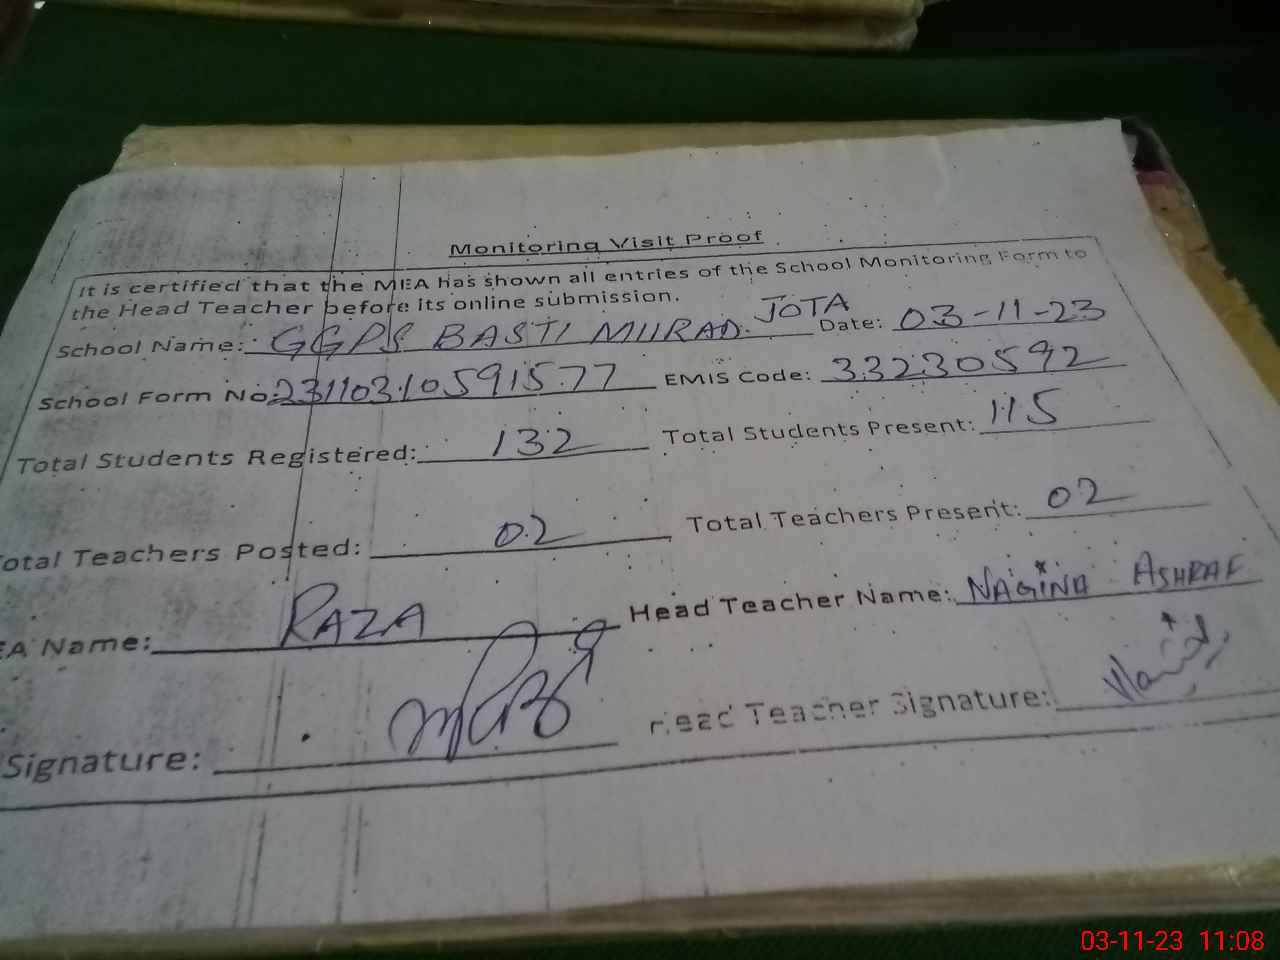 Monitoring Visit Proof
It is certified that the MEA has shown all entries of the School Monitoring Form to
the Head Teacher before its online submission.
School Name: GGPS BASTI MURAD JOTA Date: 03-11-23
School Form No: 23110310591577 EMIS Code: 33230592
Total Students Registered: 132 Total Students Present: 115
otal Teachers Posted: 02 Total Teachers Present: 02
EA Name: RAZA Head Teacher Name: NAGINA ASHRAF
Signature: Head Teacher Signature:
03-11-23 11:08